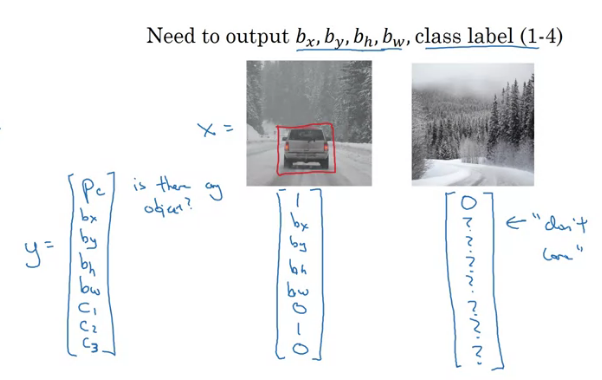 Need to output bx, by, bh, bw, class label (1-4)
x =
y =
Pc
bx
by
bh
bw
C1
C2
C3
is there any
object?
1
bx
by
bh
bw
0
1
0
0
?
?
?
?
?
?
?
← "don't
care"